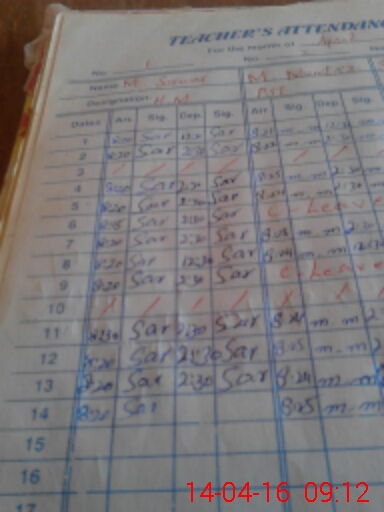 TEACHER'S ATTENDAN
For the month of April
No. 1 No. 2
Name M. Sarwar M. Nawaz
Designation H.M PST
Dates Arr. Sig. Dep. Sig. Arr. Sig. Dep. Sig.
1 8:20 Sar Sar m.m
2 8:20 Sar 2:30 Sar m.m
3
4 8:20 Sar 2:30 Sar 8:25 m.m 2:30
5 8:20 Sar 2:30 Sar 8:24 m.m 2:30
6 8:15 Sar 2:30 Sar C-Leave
7 8:20 Sar 2:30 Sar 8:25 m.m 2:30
8 8:20 Sar 12:30 Sar 8:24 m.m 12:30
9 8:20 Sar 2:30 Sar C-Leave
10
11 8:30 Sar 2:30 Sar 8:24 m.m 2
12 8:20 Sar 2:30 Sar 8:25 m.m 2
13 8:20 Sar 2:30 Sar 8:24 m.m 2
14 8:20 Sar 8:25 m.m
15
16
17
14-04-16 09:12